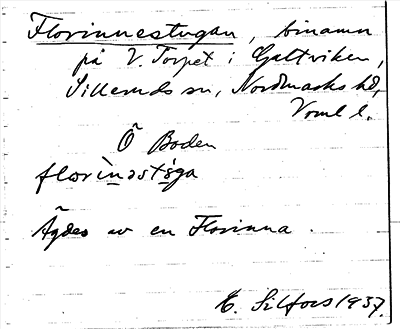 Florinnestugan, binamn
på V. Torpet i Galtviken,
Silleruds sn, Nordmarks hd,
Verml l.
Ö Boden
florìnəstɨga
Ägdes av en Florinna.
E. Silfors 1937.